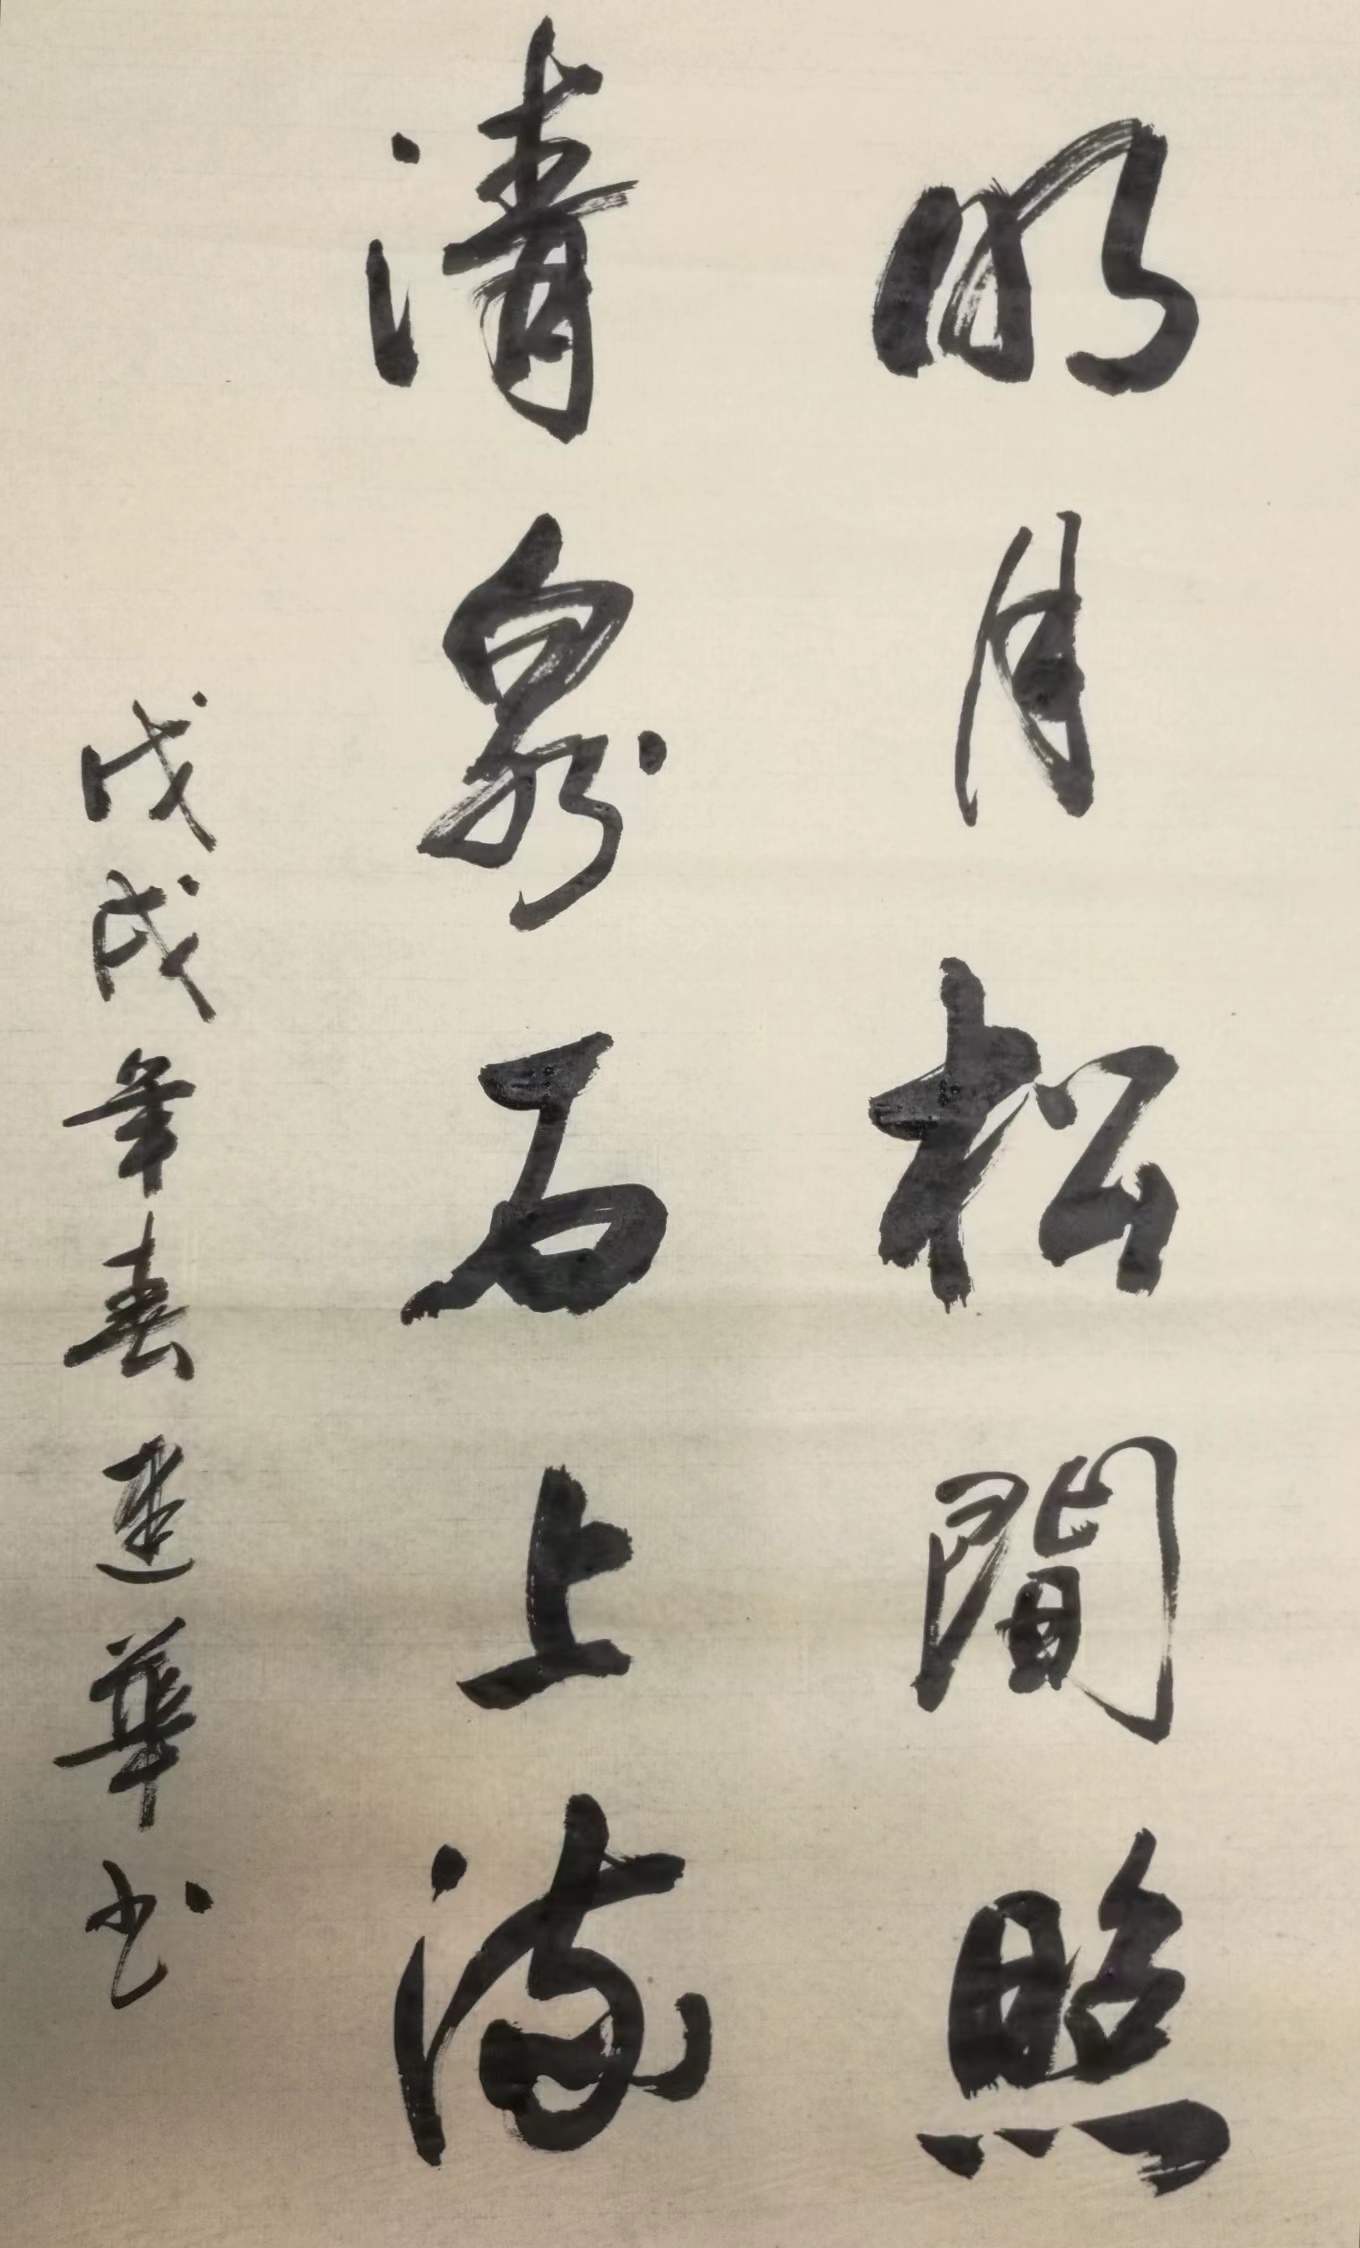 明月松間照
清泉石上流
戊戌年春建華书